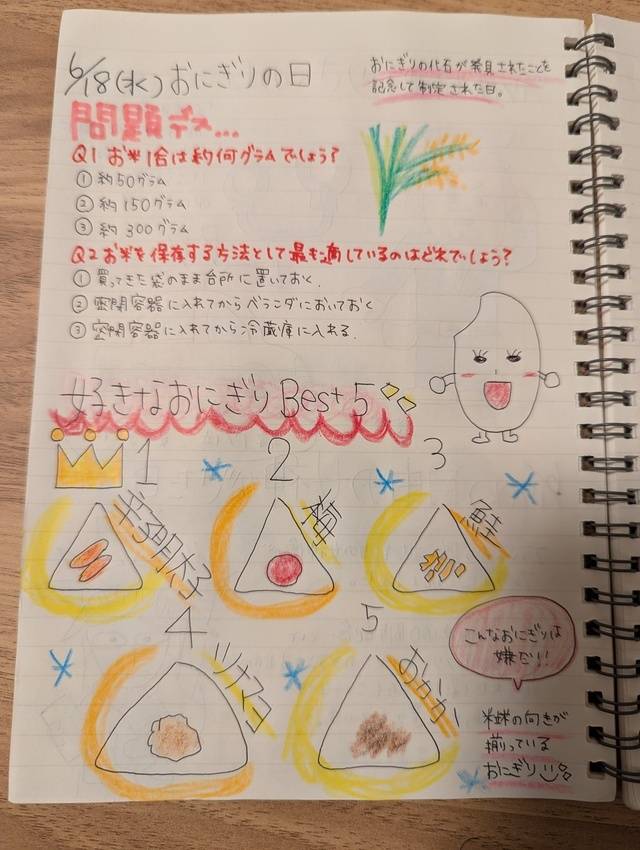 6/18(水)おにぎりの日
おにぎりの化石が発見されたことを
記念して制定された日。
問題デス...
Q1 お米1合は約何グラムでしょう?
① 約50グラム
② 約150グラム
③ 約300グラム
Q2 お米を保存する方法として最も適しているのはどれでしょう?
① 買ってきた袋のまま台所に置いておく.
② 密閉容器に入れてからベランダにおいておく
③ 密閉容器に入れてから冷蔵庫に入れる.
好きなおにぎりBest 5
1
半分明太子
2
梅
3
鮭
4
ツナマヨ
5
おかか
こんなおにぎりは
嫌だ!!
米粒の向きが
揃っている
おにぎり